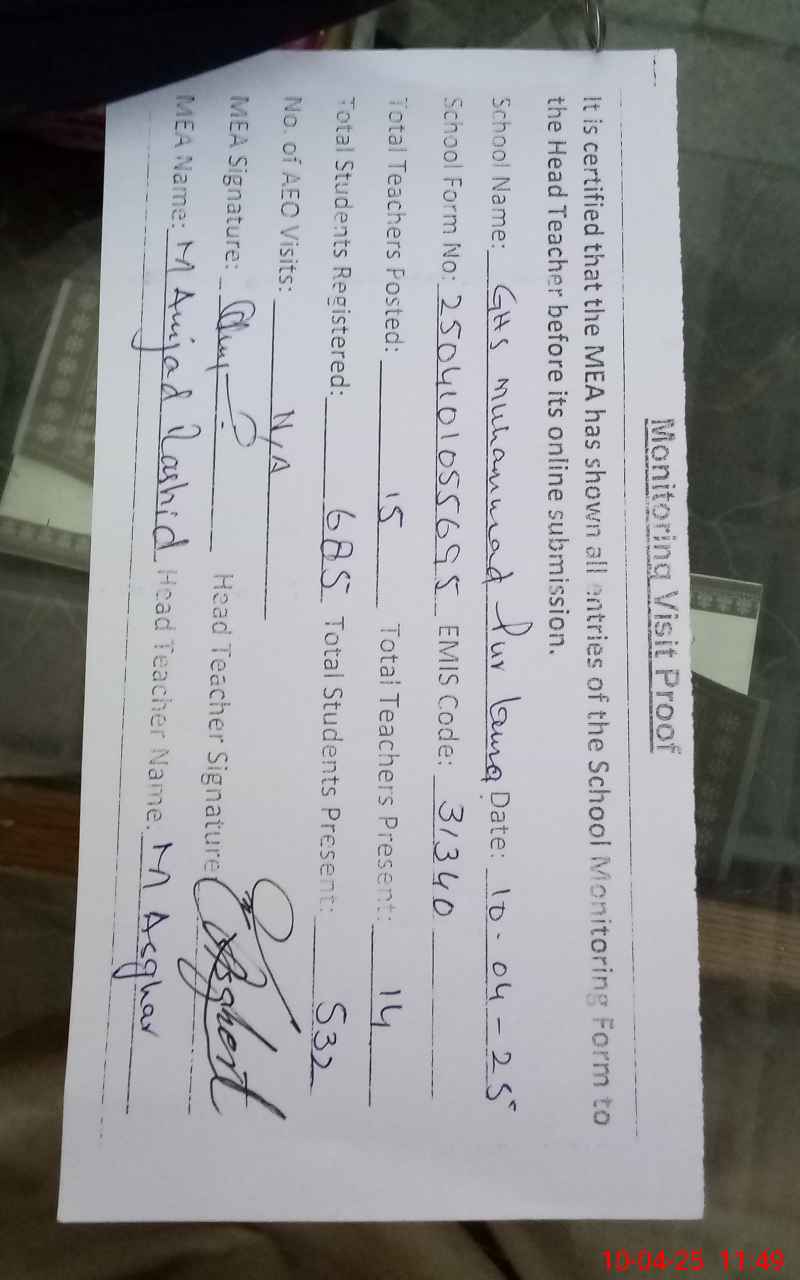 Monitoring Visit Proof
It is certified that the MEA has shown all entries of the School Monitoring Form to
the Head Teacher before its online submission.
School Name: GHS Muhammad Pur Lama Date: 10-04-25
School Form No: 2504101055695 EMIS Code: 31340
Total Teachers Posted: 15 Total Teachers Present: 14
Total Students Registered: 685 Total Students Present: 532
No. of AEO Visits: N/A
MEA Signature: Head Teacher Signature
MEA Name: M Amjad Rashid Head Teacher Name: M Asghar
10-04-25 11:49